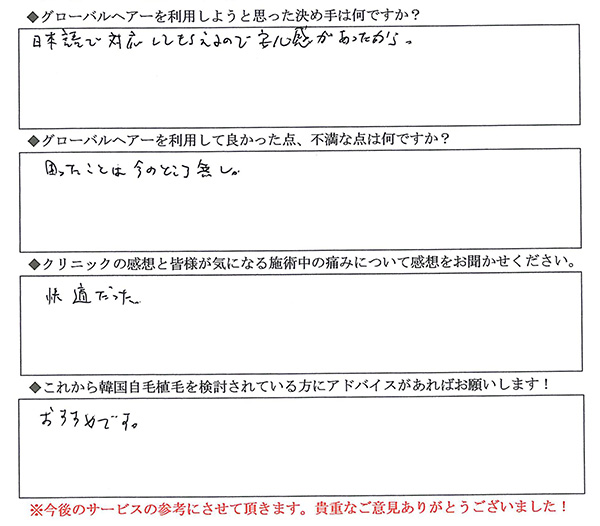 ◆グローバルヘアーを利用しようと思った決め手は何ですか？
日本語で対応してもらえるので安心感があったから。
◆グローバルヘアーを利用して良かった点、不満な点は何ですか？
困ったことは今のところ無し。
◆クリニックの感想と皆様が気になる施術中の痛みについて感想をお聞かせください。
快適だった。
◆これから韓国自毛植毛を検討されている方にアドバイスがあればお願いします！
おすすめです。
※今後のサービスの参考にさせて頂きます。貴重なご意見ありがとうございました！